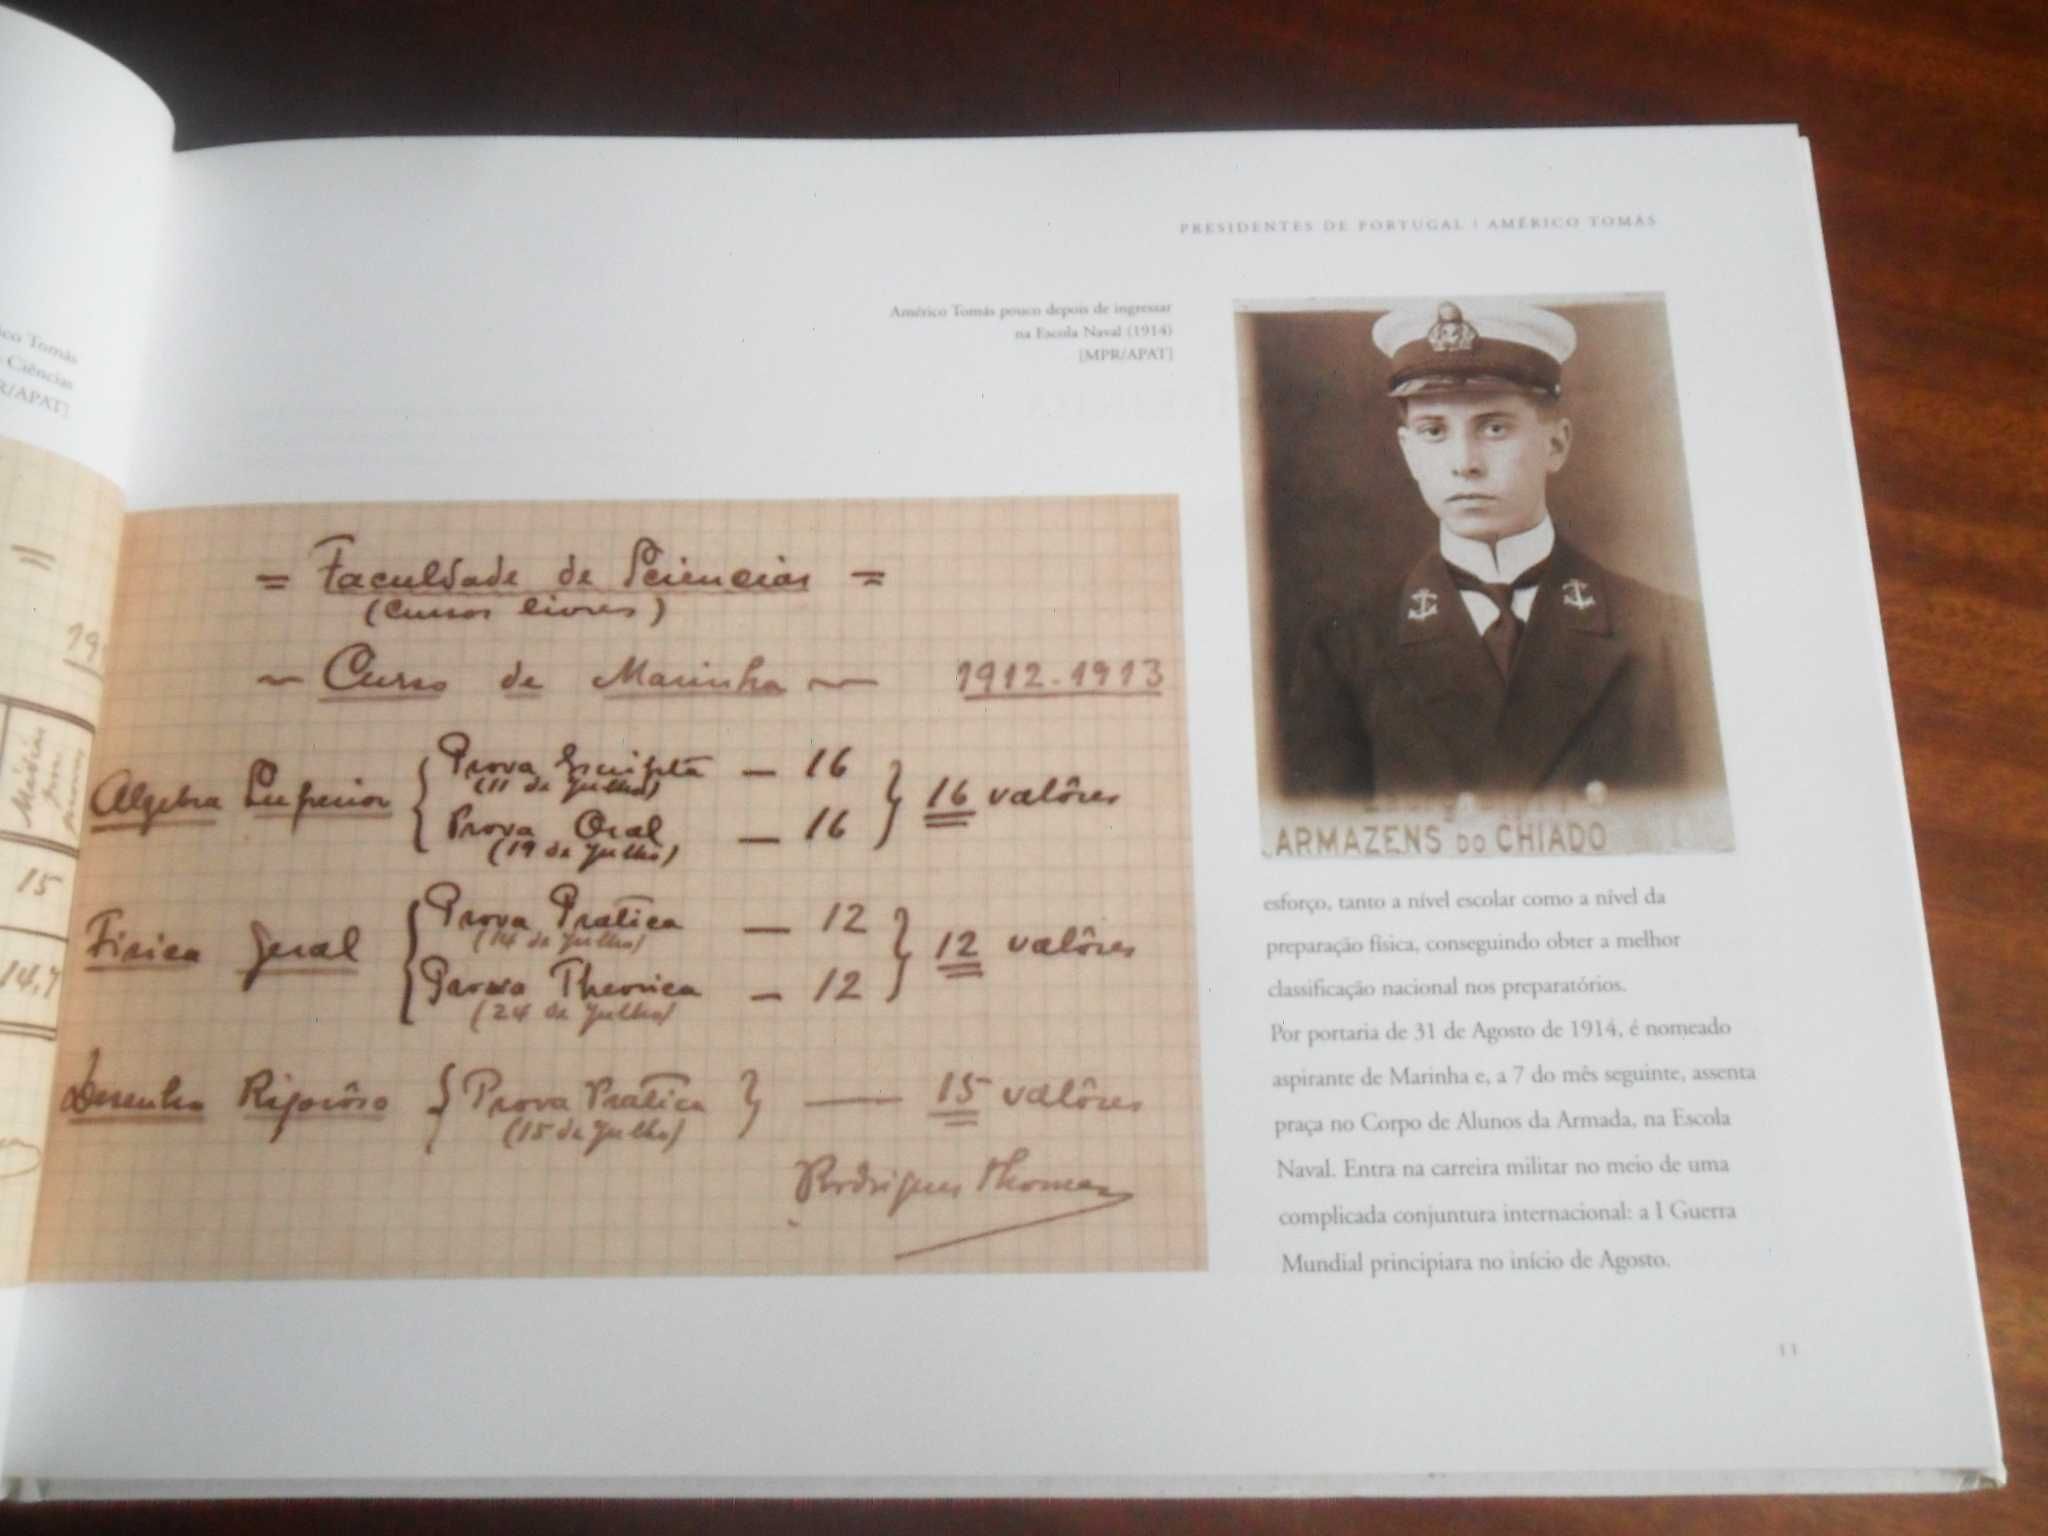 ico Tomás
Ciências
R/APAT]
=
19
Médias
15
14,7
PRESIDENTES DE PORTUGAL | AMÉRICO TOMÁS
Américo Tomás pouco depois de ingressar
na Escola Naval (1914)
[MPR/APAT]
= Faculdade de Sciencias =
(Cursos livres)
~ Curso de Marinha ~ 1912-1913
Algebra Superior { Prova Escripta — 16 } 16 valôres
(11 de Julho)
Prova Oral — 16
(19 de Julho)
Fisica Geral { Prova Pratica — 12 } 12 valôres
(14 de Julho)
Prova Theorica — 12
(24 de Julho)
Desenho Rigorôso { Prova Pratica } — 15 valôres
(15 de Julho)
Rodrigues Thomaz
ARMAZENS DO CHIADO
esforço, tanto a nível escolar como a nível da
preparação física, conseguindo obter a melhor
classificação nacional nos preparatórios.
Por portaria de 31 de Agosto de 1914, é nomeado
aspirante de Marinha e, a 7 do mês seguinte, assenta
praça no Corpo de Alunos da Armada, na Escola
Naval. Entra na carreira militar no meio de uma
complicada conjuntura internacional: a I Guerra
Mundial principiara no início de Agosto.
11